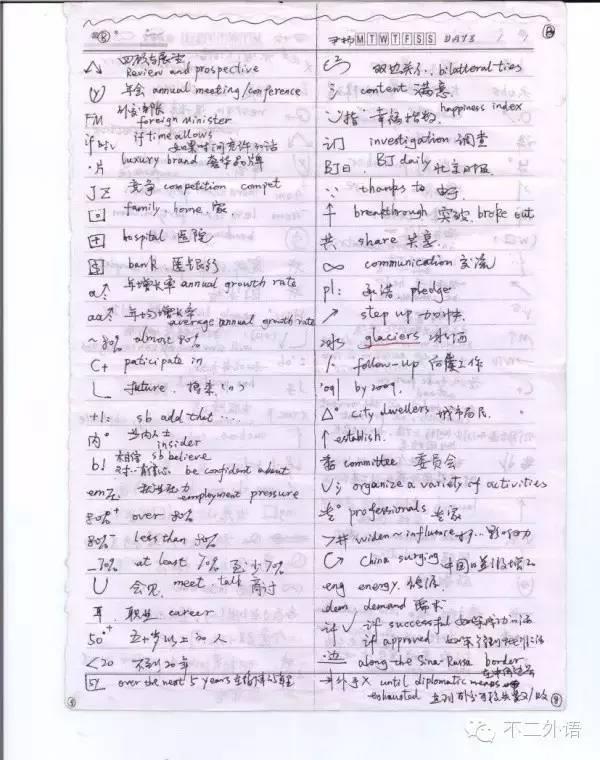 MTWTFSS DATE
回顾与展望
Review and prospective
(y) 年会 annual meeting/conference
外交部长
FM foreign minister
if时 if time allows
如果时间允许的话
·片 luxury brand 奢华品牌
J 竞争 competition compet
family, home, 家
hospital 医院
bank 银行
a↑ 年增长率 annual growth rate
aa↑ 年均增长率
average annual growth rate
~80% almost 80%
C+ paticipate in
future. 将来
+1: sb add that ....
内° 业内人士
insider
b! 相信 sb believe
对...有信心 be confident about
em压 就业压力
employment pressure
80%+ over 80%
80%- less than 80%
_70% at least 70% 至少70%
U 会见, meet, talk 商讨
耳, 职业, career
50°+ 五十岁以上的人
<20 不到20年
5y over the next 5 years
双边关系 bilateral ties
content 满意
指 幸福指数 happiness index
订 investigation 调查
BJ日 BJ daily 北京日报
∵ thanks to 由于
↑ breakthrough 突破, broke out
共 share 共享
∞ communication 交流
pl: 承诺 pledge
↗ step up 加快
glaciers 冰川
follow-up 后续工作
'09| by 2009.
△° city dwellers 城市居民
↑ establish.
委 committee 委员会
organize a variety of activities
专° professionals 专家
widen ~ influence 影响力
China surging
eng energy. 能源
dem demand 需求
if √ if successful
if approved
·边 along the Sino-Russia border
→外手X until diplomatic means
exhausted
不二外语